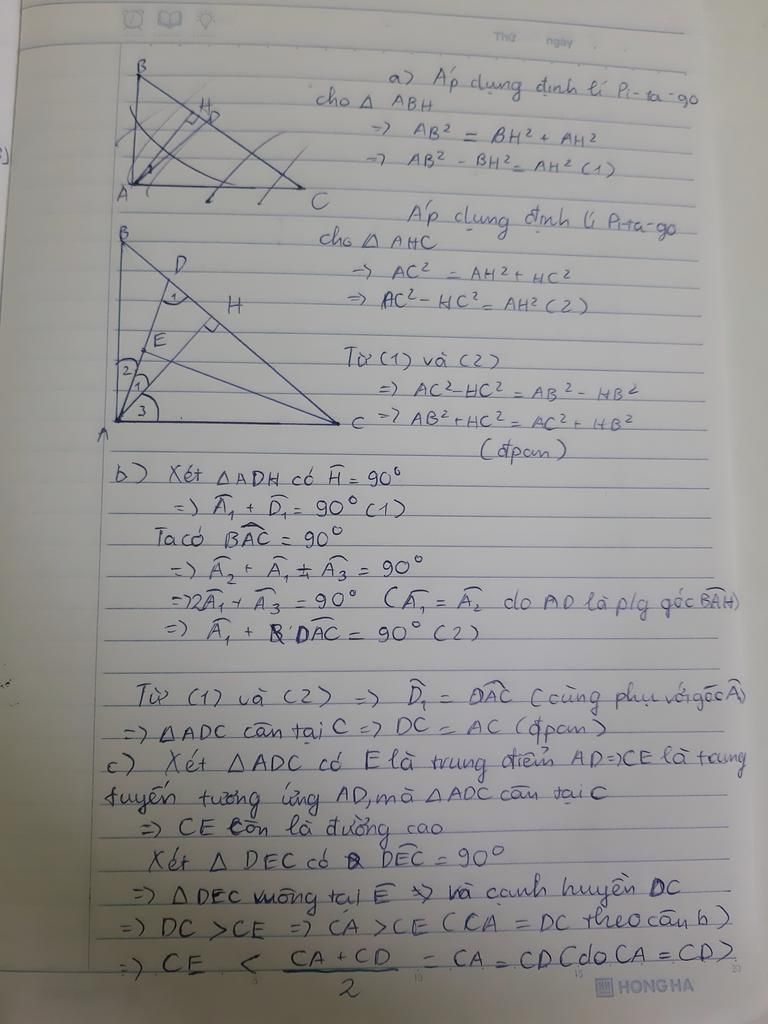 Thứ ngày
a) Áp dụng định lí Pi-ta-go
cho △ ABH
=> AB² = BH² + AH²
=> AB² - BH² = AH² (1)
B
H
D
A
C
Áp dụng định lí Pi-ta-go
cho △ AHC
=> AC² = AH² + HC²
=> AC² - HC² = AH² (2)
B
D
1
H
E
2
1
3
A
C
Từ (1) và (2)
=> AC² - HC² = AB² - HB²
=> AB² + HC² = AC² + HB²
(đpcm)
b) Xét △ADH có Ĥ = 90°
=> Â₁ + D̂₁ = 90° (1)
Ta có BÂC = 90°
=> Â₂ + Â₁ + Â₃ = 90°
=> 2Â₁ + Â₃ = 90° (Â₁ = Â₂ do AD là p/g góc BÂH)
=> Â₁ + DÂC = 90° (2)
Từ (1) và (2) => D̂₁ = DÂC (cùng phụ với góc Â₁)
=> △ADC cân tại C => DC = AC (đpcm)
c) Xét △ADC có E là trung điểm AD => CE là trung
tuyến tương ứng AD, mà △ADC cân tại C
=> CE còn là đường cao
Xét △ DEC có DÊC = 90°
=> △DEC vuông tại E => và cạnh huyền DC
=> DC > CE => CA > CE (CA = DC theo câu b)
=> CE < (CA + CD)/2 = CA = CD (do CA = CD)
HONG HA